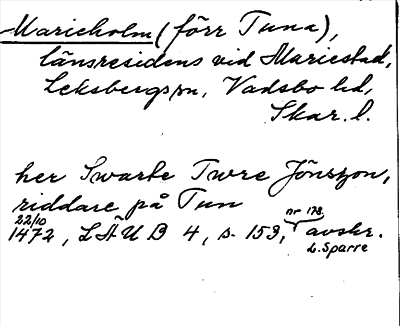 Marieholm (förr Tuna),
länsresidens vid Mariestad,
Leksbergs sn, Vadsbo hd,
Skar. l.
her Swarte Twre Jönszon,
riddare på Tun
22/10
1472, LÄUB 4, s. 153, nr 178, avskr.
L. Sparre